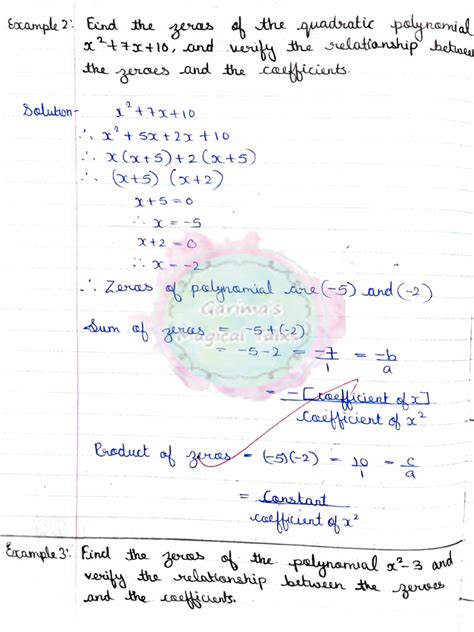 Example 2: Find the zeros of the quadratic polynomial
x²+7x+10, and verify the relationship between
the zeroes and the coefficients.
Solution- x²+7x+10
∴ x²+5x+2x+10
∴ x(x+5)+2(x+5)
∴ (x+5) (x+2)
x+5=0
∴ x=-5
x+2=0
∴ x=-2
∴ Zeros of polynomial are (-5) and (-2)
Garima's
Magical Talks
Sum of zeros = -5+(-2)
= -5-2 = -7/1 = -b/a
= -[coefficient of x]/coefficient of x²
Product of zeros = (-5)(-2) = 10/1 = c/a
= Constant/coefficient of x²
Example 3: Find the zeros of the polynomial x²-3 and
verify the relationship between the zeroes
and the coefficients.